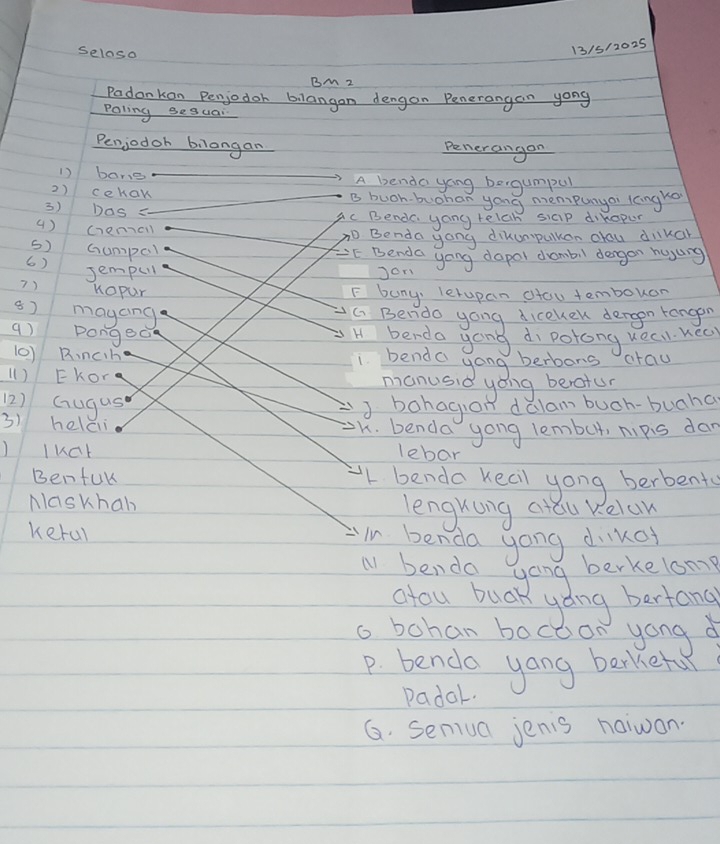 Selasa 13/5/2025
BM 2
Padankan Penjodoh bilangan dengan Penerangan yang
Paling sesuai.
Penjodoh bilangan Penerangan
1) baris A benda yang bergumpul
2) cekak B buah-buahan yang mempunyai
3) Das C Benda yang telah siap dikapur
4) Cemail D Benda yang dikumpulkan atau diikat
5) Gumpal E Benda yang dapat diambil dengan hujung
6) Jempul Jari
7) Kapur F bunyi letupan atau tembakan
8) mayang G Benda yang dicekek dengan tangan
9) H benda yang di potong kecil-kecil
10) Rincih i. benda yang berbaris atau
11) Ekor manusia yang beratur
12) Gugus J bahagian dalam buah-buaha
3) helai K. benda yang lembut, nipis dan
) Ikat lebar
Bentuk L benda kecil yang berbentu
Naskhah lengkung atau kelok
Ketul M benda yang diikat
N benda yang berkelomp
atau buah yang bertang
O bahan bacaan yang d
P. benda yang berketul
Padat.
G. Semua jenis haiwan.